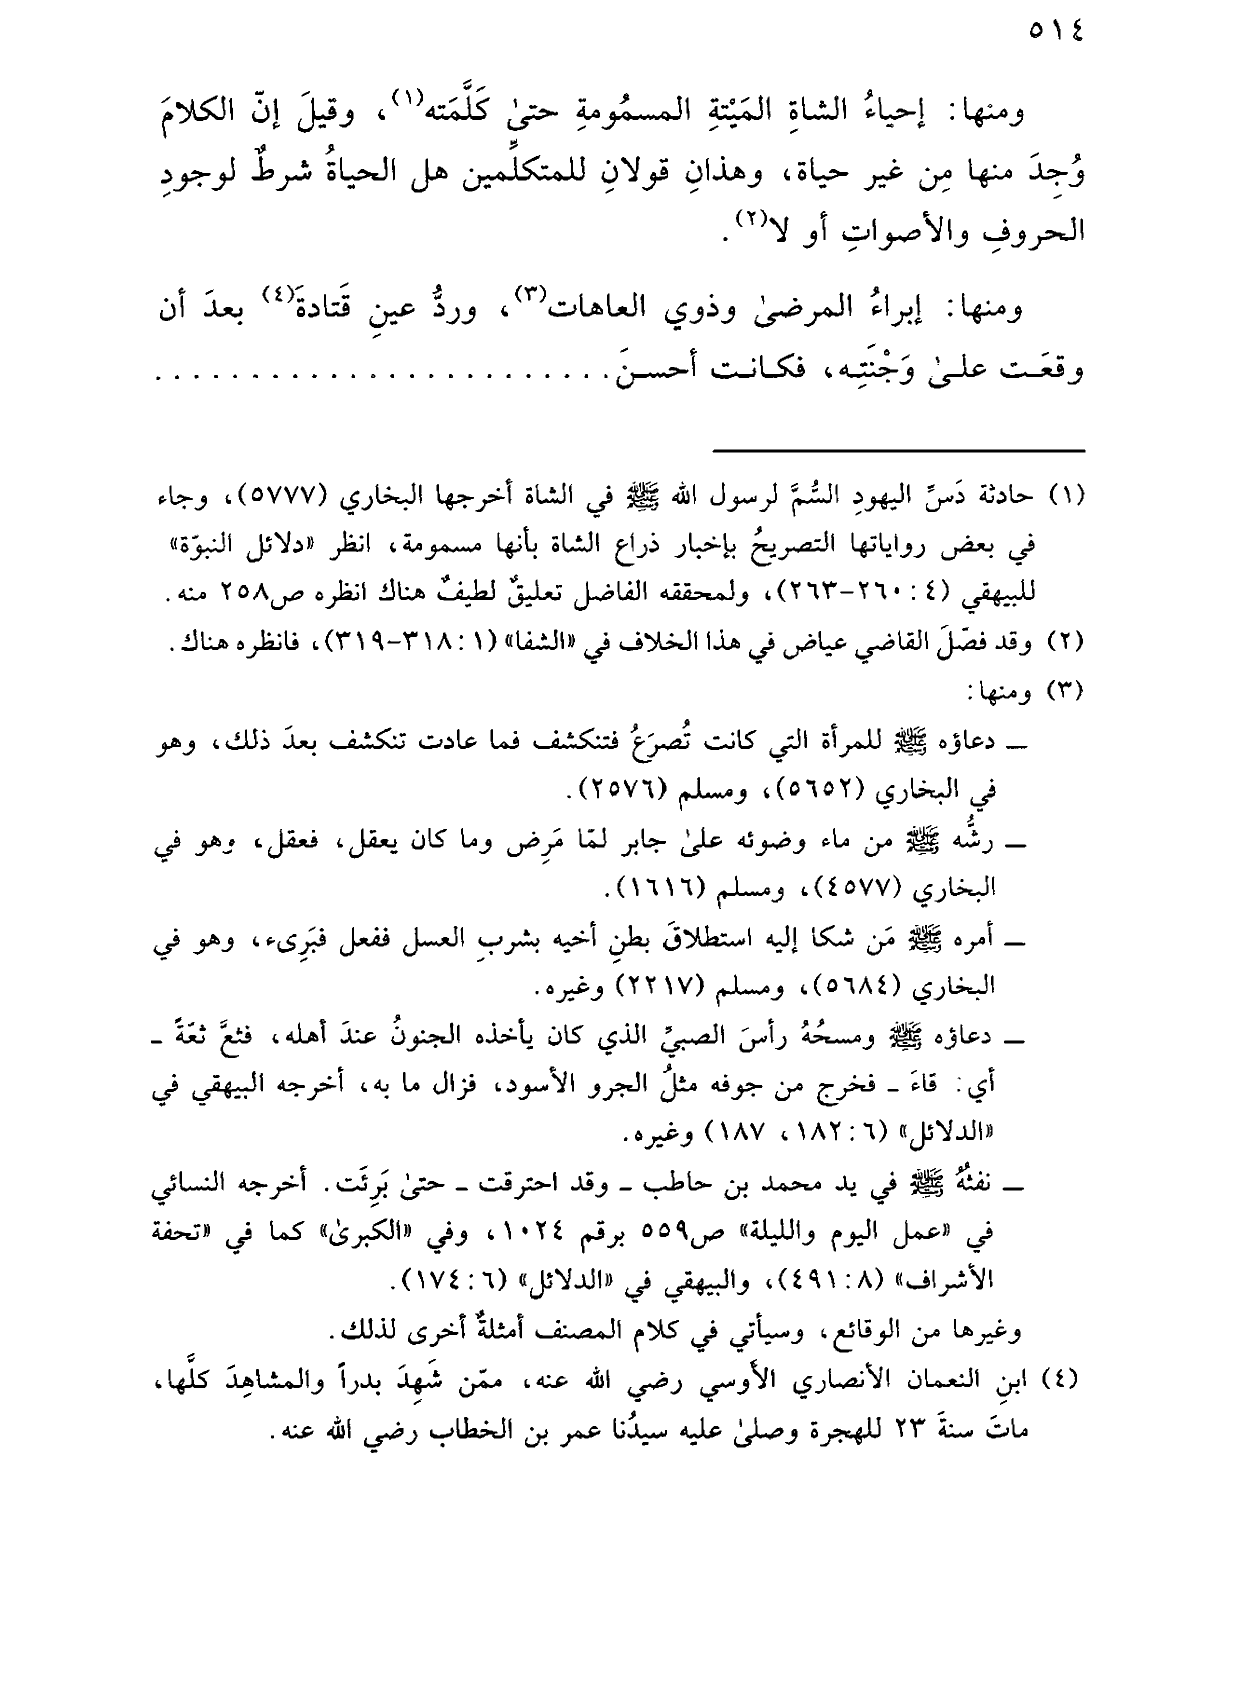 ٥١٤
ومنها: إحياءُ الشاةِ المَيْتةِ المسمُومةِ حتىٰ كَلَّمَته(١)، وقيلَ إنّ الكلامَ
وُجِدَ منها مِن غير حياة، وهذانِ قولانِ للمتكلِّمين هل الحياةُ شرطٌ لوجودِ
الحروفِ والأصواتِ أو لا(٢).
ومنها: إبراءُ المرضىٰ وذوي العاهات(٣)، وردُّ عينِ قَتادةَ(٤) بعدَ أن
وقعَـت علـىٰ وَجْنَتِـه، فكـانـت أحسـنَ. . . . . . . . . . . . . . . . . . . . . .
(١) حادثة دَسِّ اليهودِ السُّمَّ لرسول الله ﷺ في الشاة أخرجها البخاري (٥٧٧٧)، وجاء
في بعض رواياتها التصريحُ بإخبار ذراع الشاة بأنها مسمومة، انظر «دلائل النبوّة»
للبيهقي (٤: ٢٦٠-٢٦٣)، ولمحققه الفاضل تعليقٌ لطيفٌ هناك انظره ص٢٥٨ منه.
(٢) وقد فصّلَ القاضي عياض في هذا الخلاف في «الشفا» (١: ٣١٨-٣١٩)، فانظره هناك.
(٣) ومنها:
ـ دعاؤه ﷺ للمرأة التي كانت تُصرَعُ فتنكشف فما عادت تنكشف بعدَ ذلك، وهو
في البخاري (٥٦٥٢)، ومسلم (٢٥٧٦).
ـ رشُّه ﷺ من ماء وضوئه علىٰ جابر لمّا مَرِض وما كان يعقل، فعقل، وهو في
البخاري (٤٥٧٧)، ومسلم (١٦١٦).
ـ أمره ﷺ مَن شكا إليه استطلاقَ بطنِ أخيه بشربِ العسل ففعل فبَرِىء، وهو في
البخاري (٥٦٨٤)، ومسلم (٢٢١٧) وغيره.
ـ دعاؤه ﷺ ومسحُهُ رأسَ الصبيِّ الذي كان يأخذه الجنونُ عندَ أهله، فثعَّ ثعّةً ـ
أي: قاءَ ـ فخرج من جوفه مثلُ الجرو الأسود، فزال ما به، أخرجه البيهقي في
«الدلائل» (٦: ١٨٢، ١٨٧) وغيره.
ـ نفثُهُ ﷺ في يد محمد بن حاطب ـ وقد احترقت ـ حتىٰ بَرِئَت. أخرجه النسائي
في «عمل اليوم والليلة» ص٥٥٩ برقم ١٠٢٤، وفي «الكبرىٰ» كما في «تحفة
الأشراف» (٨: ٤٩١)، والبيهقي في «الدلائل» (٦: ١٧٤).
وغيرها من الوقائع، وسيأتي في كلام المصنف أمثلةٌ أخرى لذلك.
(٤) ابنِ النعمان الأنصاري الأوسي رضي الله عنه، ممّن شَهِدَ بدراً والمشاهِدَ كلَّها،
ماتَ سنةَ ٢٣ للهجرة وصلىٰ عليه سيدُنا عمر بن الخطاب رضي الله عنه.